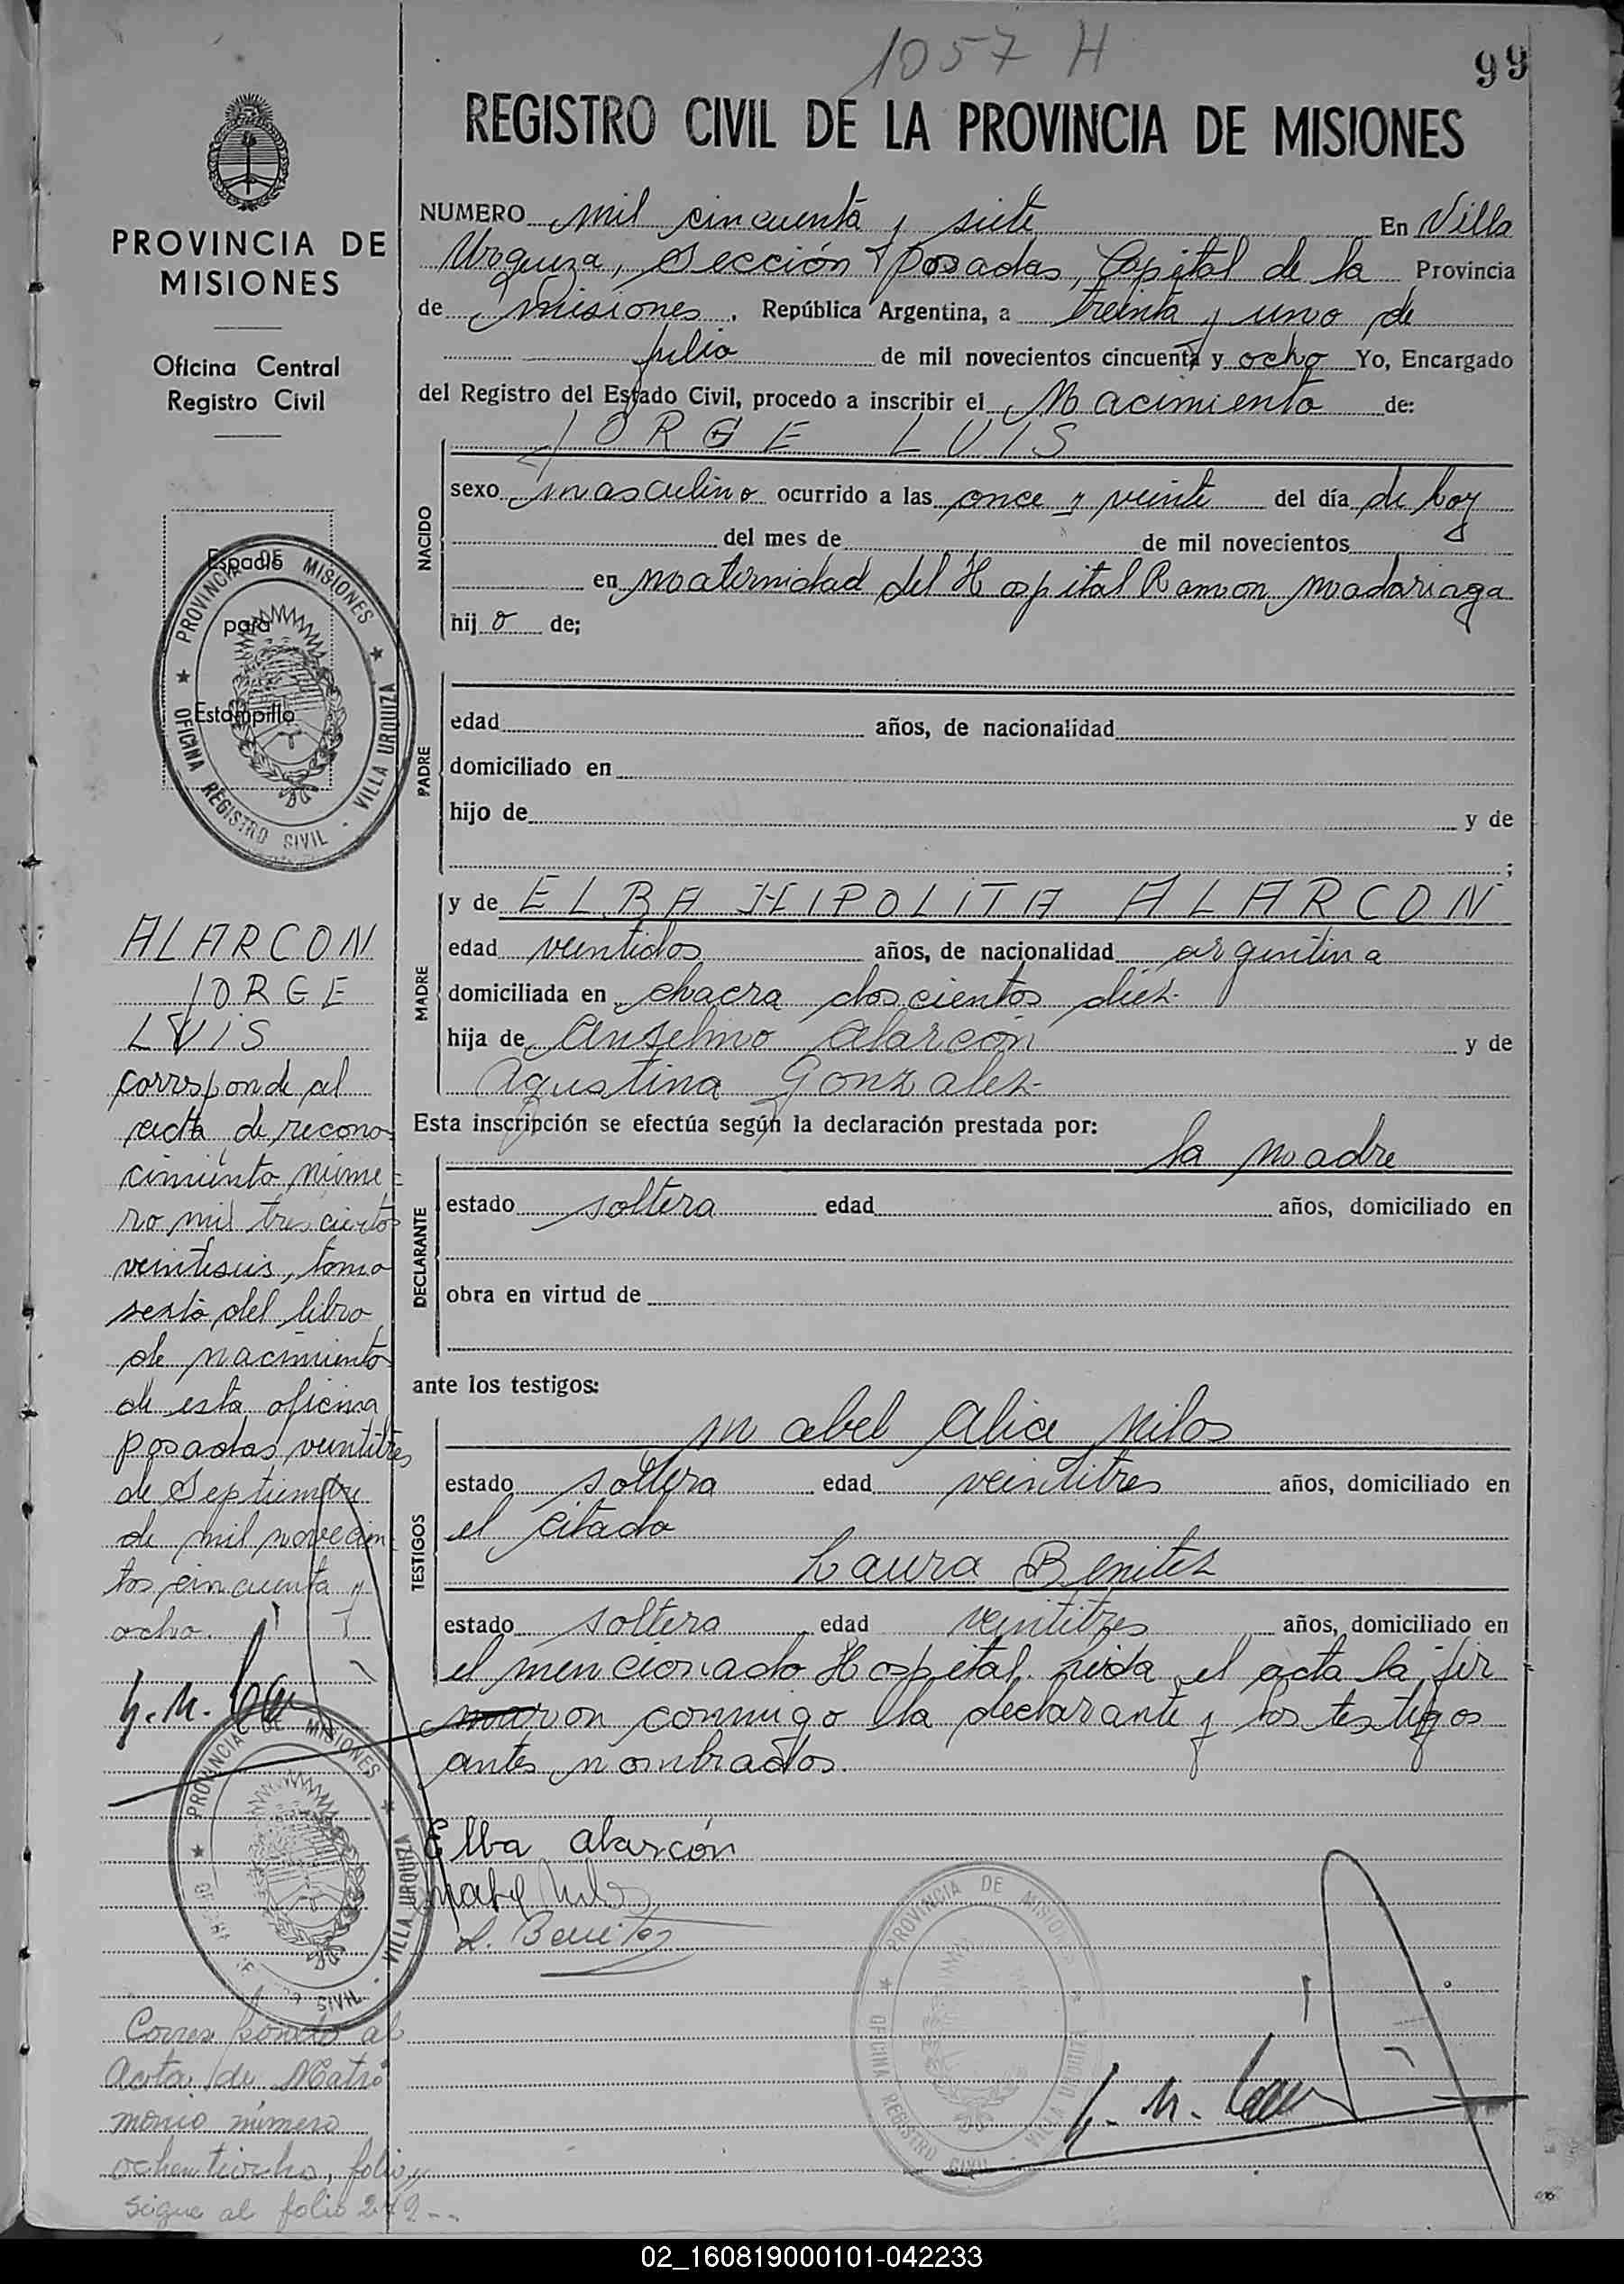 1057 H
99
REGISTRO CIVIL DE LA PROVINCIA DE MISIONES
PROVINCIA DE
MISIONES
Oficina Central
Registro Civil
Espacio
para
Estampilla
PROVINCIA DE MISIONES
OFICINA REGISTRO CIVIL - VILLA URQUIZA
NUMERO mil cincuenta y siete En Villa
Urquiza, Sección Posadas, Capital de la Provincia
de Misiones, República Argentina, a treinta y uno de
julio de mil novecientos cincuenta y ocho Yo, Encargado
del Registro del Estado Civil, procedo a inscribir el Nacimiento de:
NACIDO
JORGE LUIS
sexo masculino ocurrido a las once y veinte del día de hoy
del mes de de mil novecientos
en maternidad del Hospital Ramon Madariaga
hij o de;
PADRE
edad años, de nacionalidad
domiciliado en
hijo de y de
;
MADRE
y de ELBA HIPOLITA ALARCON
edad veintidos años, de nacionalidad argentina
domiciliada en chacra doscientos diez-
hija de Anselmo Alarcón y de
Agustina Gonzalez-
Esta inscripción se efectúa según la declaración prestada por:
DECLARANTE
la madre
estado soltera edad años, domiciliado en
obra en virtud de
ante los testigos:
TESTIGOS
Mabel Alice Milos
estado soltera edad veintitres años, domiciliado en
el citado
Laura Benitez
estado soltera edad veintitres años, domiciliado en
el mencionado Hospital. Leida el acta la fir
maron conmigo la declarante y los testigos
antes nombrados.
Elba Alarcón
L. Benitez
PROVINCIA DE MISIONES
OFICINA REGISTRO CIVIL - VILLA URQUIZA
ALARCON
JORGE
LUIS
corresponde al
acta de recono
cimiento núme=
ro mil trescientos
veintiseis, tomo
sexto del libro
de nacimiento
de esta oficina
Posadas, veintitres
de Septiembre
de mil novecien
tos cincuenta y
ocho.
PROVINCIA DE MISIONES
VILLA URQUIZA
CIVIL
Corresponde al
Acta de Matri
monio número
ochentiocho, folio
sigue al folio 249--
02_160819000101-042233